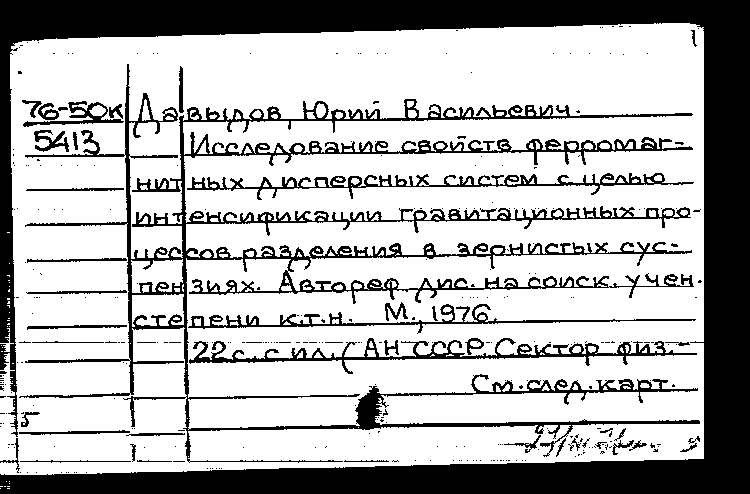 76-50к Давыдов, Юрий Васильевич.
5413 Исследование свойств ферромаг-
нитных дисперсных систем с целью
интенсификации гравитационных про-
цессов разделения в зернистых сус-
пензиях. Автореф. дис. на соиск. учен.
степени к.т.н. М., 1976.
22 с. с ил. (АН СССР. Сектор физ.-
См. след. карт.
5